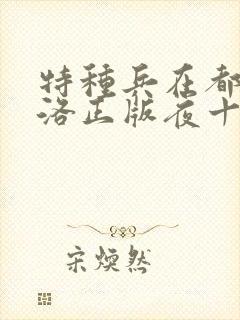 特種兵在都
洛正版夜十
宋煥然